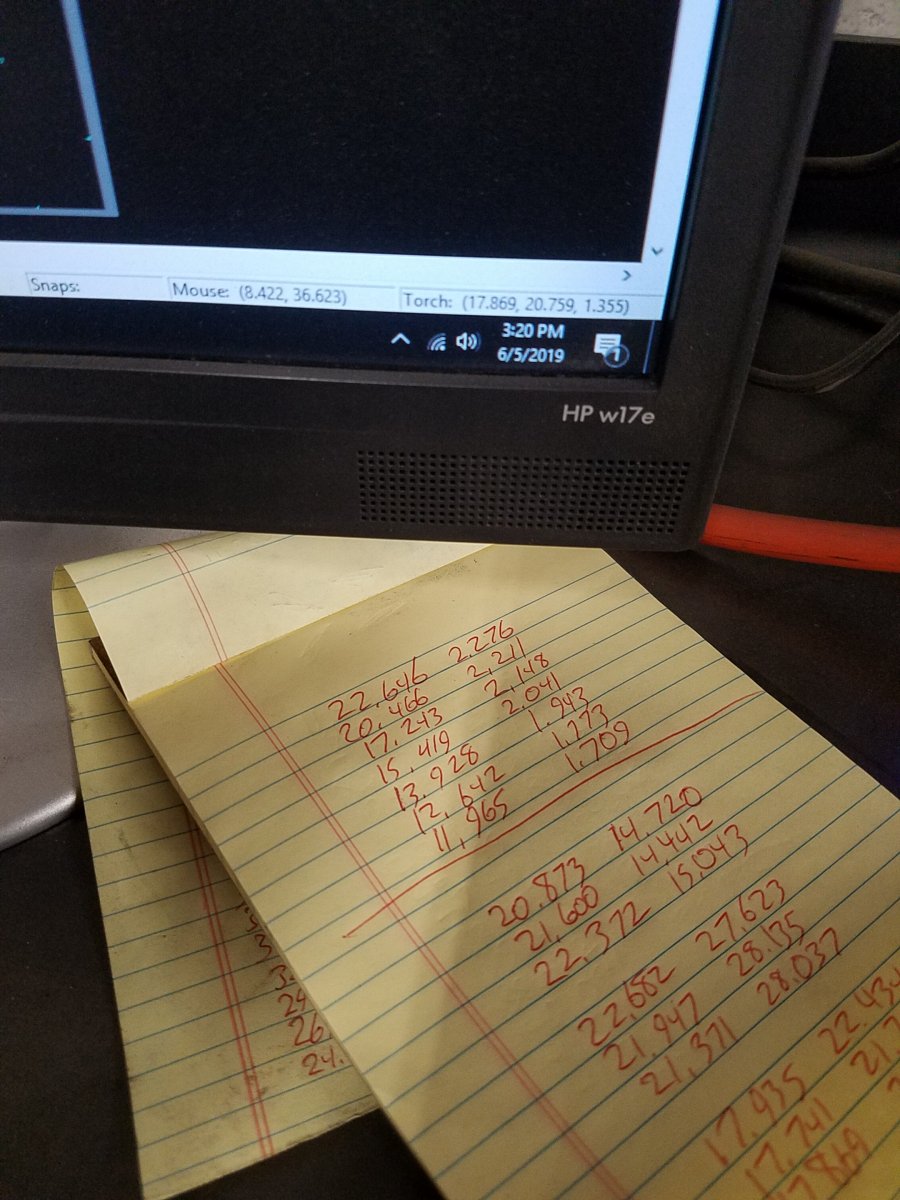 Snaps: Mouse: (8.422, 36.623) Torch: (17.869, 20.759, 1.355)
3:20 PM
6/5/2019
1
HP w17e
22.646 2.276
20.466 2.211
17.243 2.148
15.419 2.041
13.928 1.943
12.642 1.773
11.965 1.709
20.873 14.720
21.600 14.442
22.372 15.043
22.682 27.623
21.947 28.135
21.371 28.037
17.935 22.434
17.741
24
26
24.